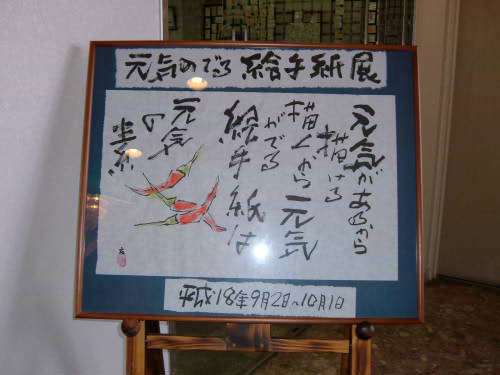 元気のでる絵手紙展
元気があるから
描ける
描くから元気
がでる
絵手紙は
元気
の
平成18年9月2日~10月1日